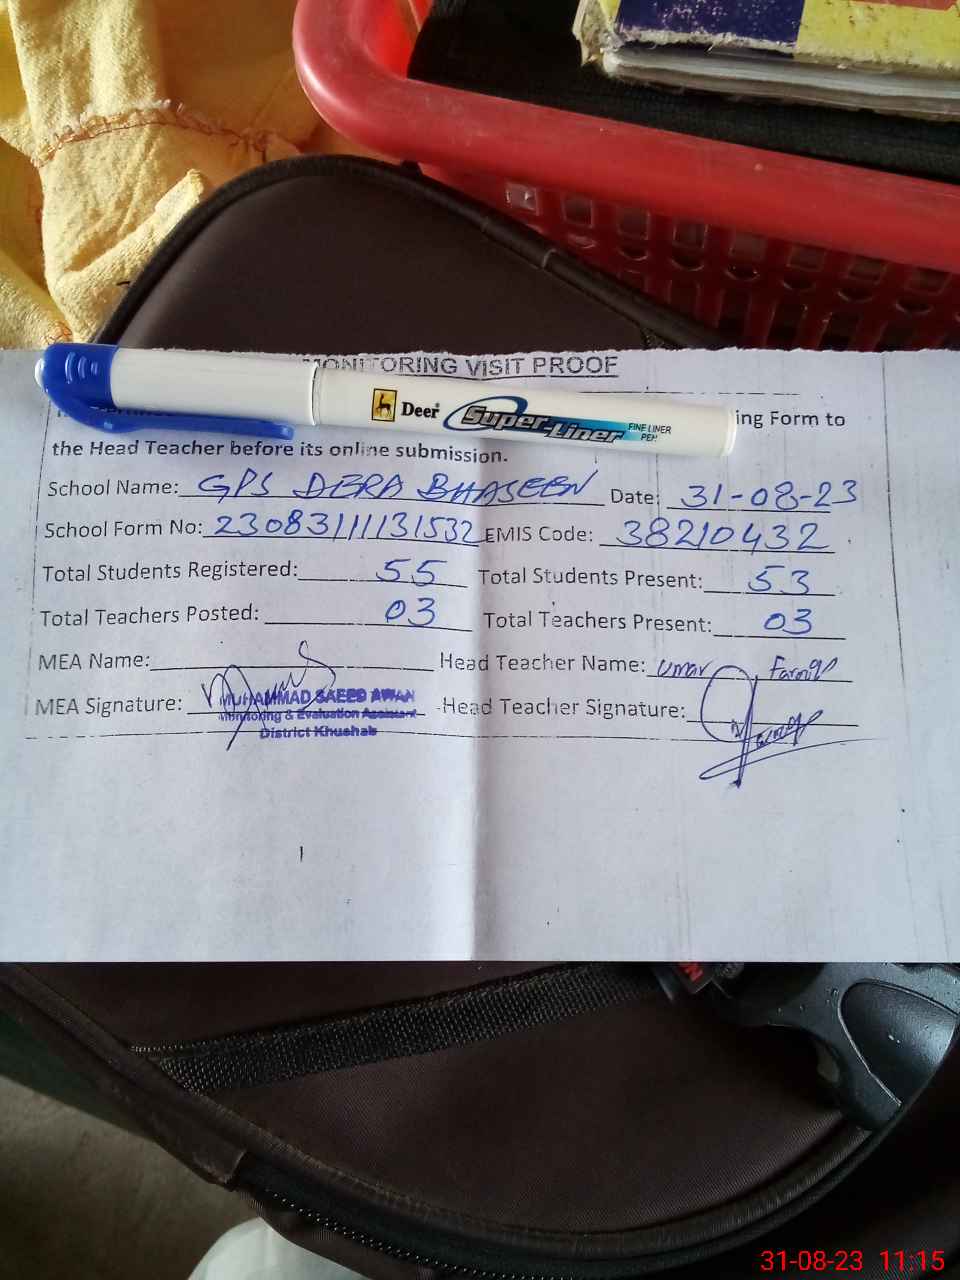 MONITORING VISIT PROOF
Deer Super-Liner FINE LINER PEN
ing Form to
the Head Teacher before its online submission.
School Name: GPS DERA BHASEEN Date: 31-08-23
School Form No: 23083111131532 EMIS Code: 38210432
Total Students Registered: 55 Total Students Present: 53
Total Teachers Posted: 03 Total Teachers Present: 03
MEA Name: Head Teacher Name: Umar Farooq
MEA Signature: Head Teacher Signature:
MUHAMMAD SAEED AWAN
Monitoring & Evaluation Assistant
District Khushab
31-08-23 11:15